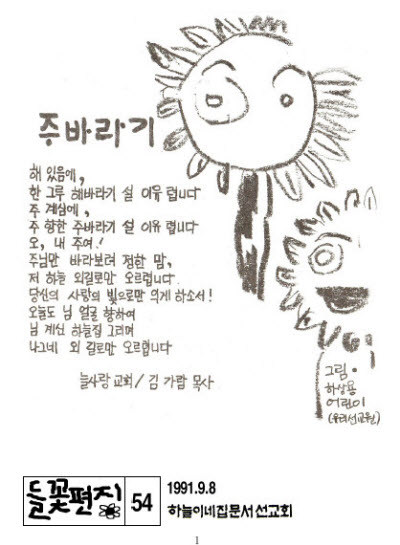 주바라기
해 있음에,
한 그루 해바라기 설 이유 됩니다
주 계심에,
주 향한 주바라기 설 이유 됩니다
오, 내 주여!
주님만 바라보려 정한 맘,
저 하늘 외길로만 오르렵니다
당신의 사랑의 빛으로만 익게 하소서!
오늘도 님 얼굴 향하여
님 계신 하늘집 그리며
나그네 외 길로만 오르렵니다
늘사랑 교회/김 가람 목사
그림·
하상용
어린이
(우리선교원)
들꽃편지 54
1991.9.8
하늘이네집문서선교회
1